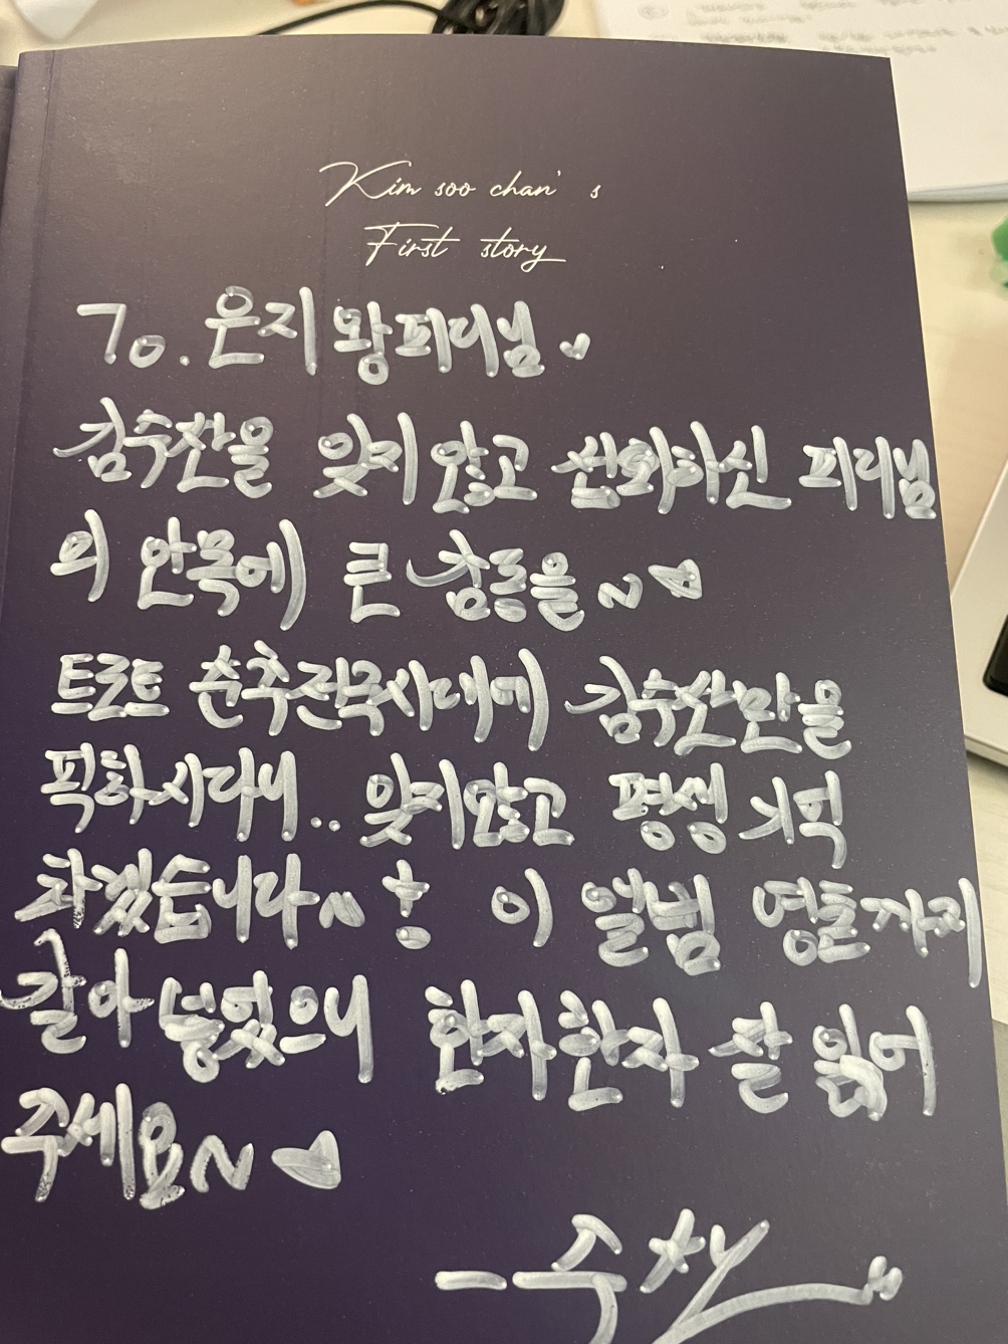 Kim soo chan's
First story
To. 은지 왕피디님
김수찬을 잊지 않고 전화하신 피디님
의 안목에 큰 감동을~
트로트 춘추전국시대에 김수찬만을
픽하시다니.. 잊지않고 평생 기억
하겠습니다~ 총 이 앨범 영혼까지
갈아 넣었으니 한자한자 잘 읽어
주세요~
-수찬